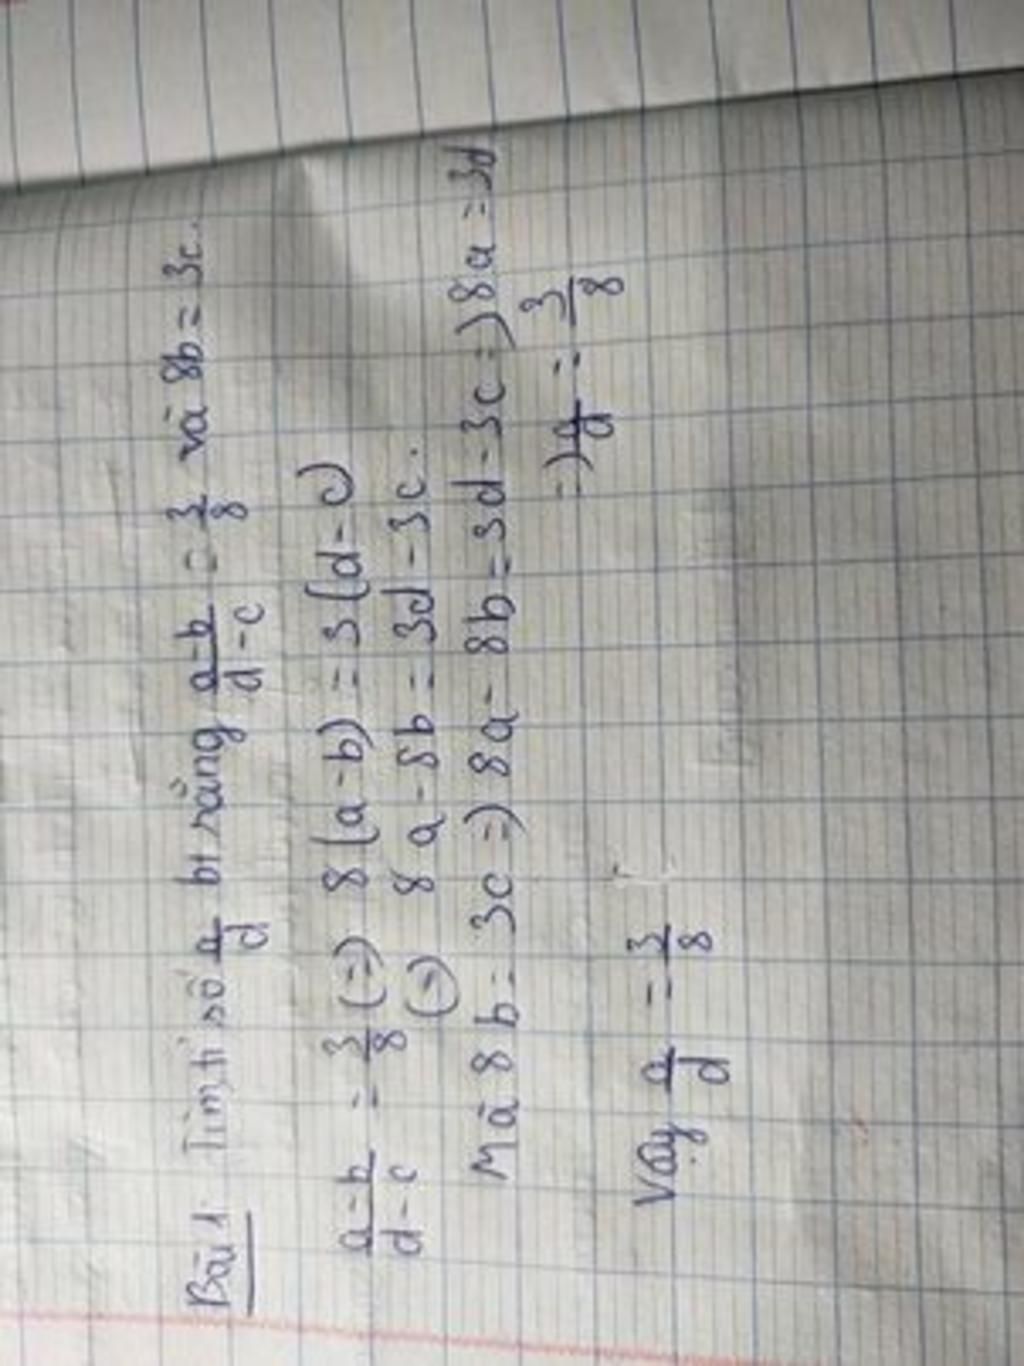 Bài 1: Tìm tỉ số a/d bt rằng a-b/d-c = 3/8 và 8b = 3c.
a-b/d-c = 3/8 (=) 8(a-b) = 3(d-c)
(=) 8a - 8b = 3d - 3c.
Mà 8b = 3c =) 8a - 8b = 3d - 3c =) 8a = 3d
=) a/d = 3/8
Vậy a/d = 3/8